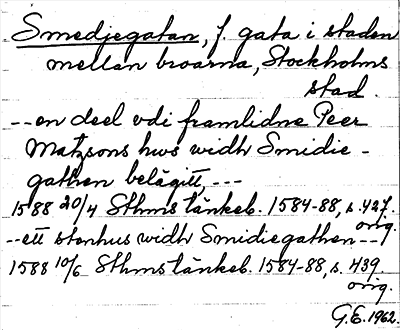 Smedjegatan, f. gata i staden
mellan broarna, Stockholms
stad.
--en deel vdi framlidne Peer
Matzsons hws widh Smidie-
gathen belägitt, ---
1588 20/4 Sthms tänkeb. 1584-88, s. 427.
orig.
--ett stenhus widh Smidiegathen--
1588 10/6 Sthms tänkeb. 1584-88, s. 439.
orig.
G.E. 1962.